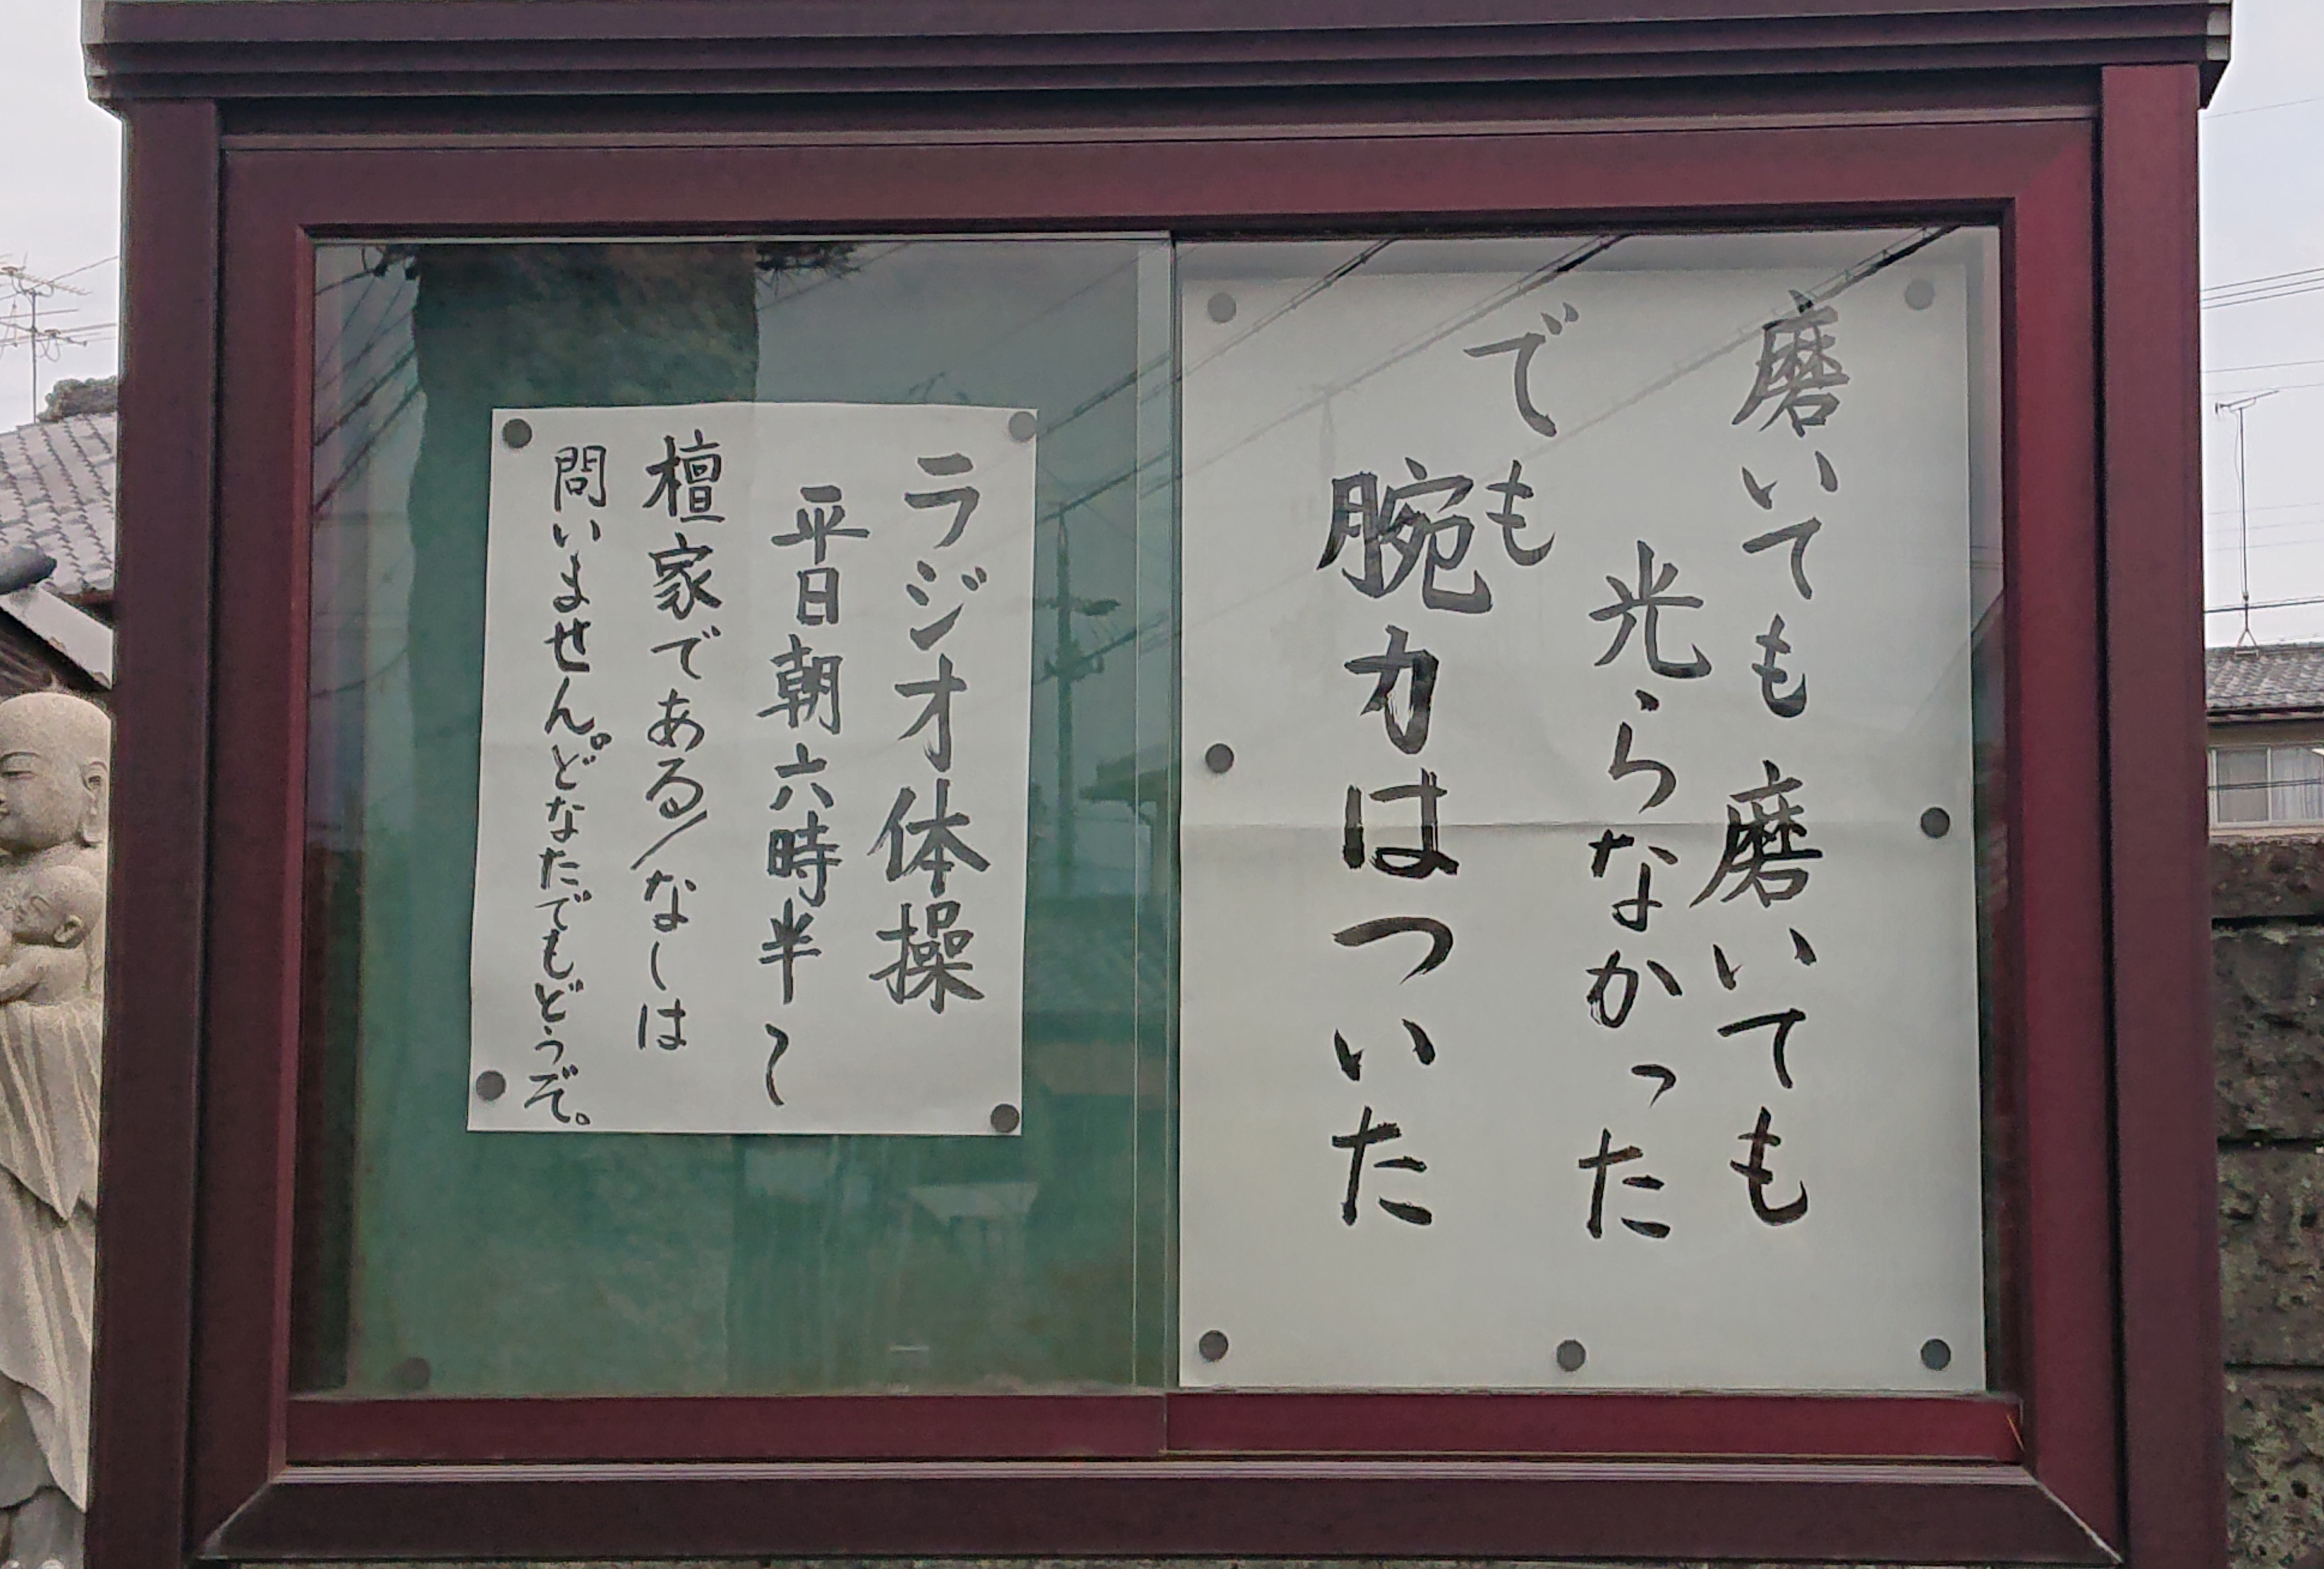 磨いても磨いても
光らなかった
でも
腕力はついた
ラジオ体操
平日朝六時半〜
檀家である/なしは
問いません。どなたでもどうぞ。